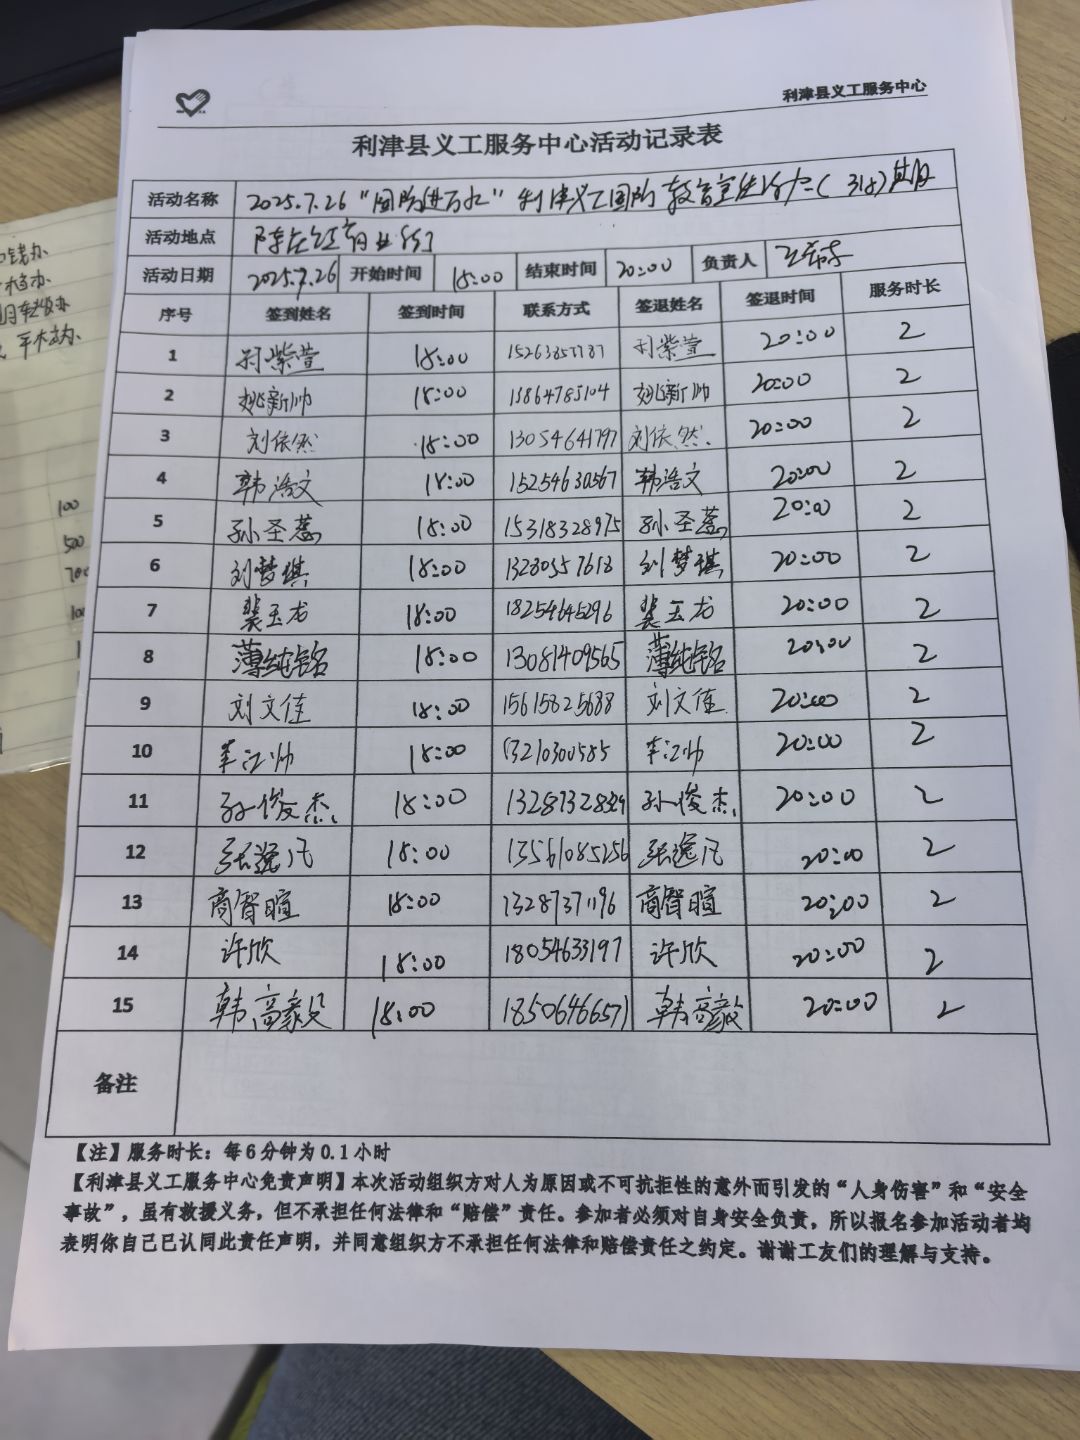 利津县义工服务中心
利津县义工服务中心活动记录表
活动名称 2025.7.26“国防进万家”利津义工国防教育宣传活动(318)期
活动地点
活动日期 2025.7.26 开始时间 18:00 结束时间 20:00 负责人
序号 签到姓名 签到时间 联系方式 签退姓名 签退时间 服务时长
1 孙紫萱 18:00 孙紫萱 20:00 2
2 姚新帅 18:00 13864785104 姚新帅 20:00 2
3 刘依然 18:00 13054641797 刘依然 20:00 2
4 韩浩文 18:00 15254630567 韩浩文 20:00 2
5 孙圣蕊 18:00 15318328975 孙圣蕊 20:00 2
6 刘梦琪 18:00 13280557618 刘梦琪 20:00 2
7 裴玉龙 18:00 18254645296 裴玉龙 20:00 2
8 薄纯铭 18:00 13081409565 薄纯铭 20:00 2
9 刘文佳 18:00 15615825688 刘文佳 20:00 2
10 李江帅 18:00 13210300585 李江帅 20:00 2
11 孙俊杰 18:00 孙俊杰 20:00 2
12 张逸凡 18:00 13561085256 张逸凡 20:00 2
13 商智暄 18:00 13287371196 商智暄 20:00 2
14 许欣 18:00 18054633197 许欣 20:00 2
15 韩高毅 18:00 18506466571 韩高毅 20:00 2
备注
【注】服务时长：每6分钟为0.1小时
【利津县义工服务中心免责声明】本次活动组织方对人为原因或不可抗拒性的意外而引发的“人身伤害”和“安全
事故”，虽有救援义务，但不承担任何法律和“赔偿”责任。参加者必须对自身安全负责，所以报名参加活动者均
表明你自己已认同此责任声明，并同意组织方不承担任何法律和赔偿责任之约定。谢谢工友们的理解与支持。
100
500
700